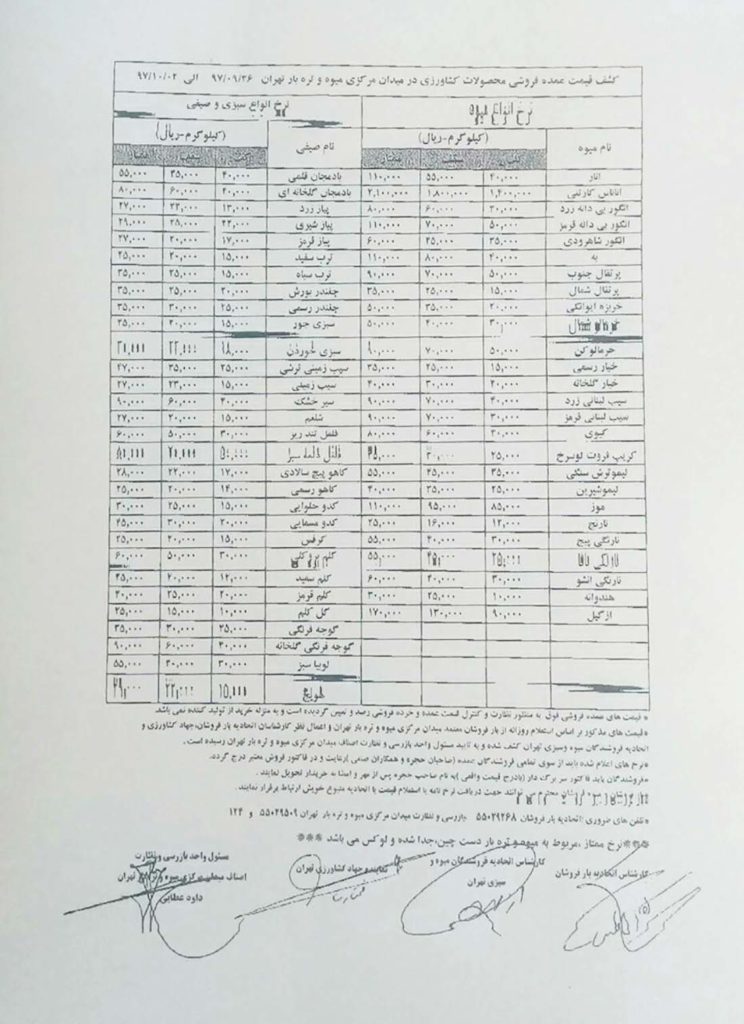 کشف قیمت عمده فروشی محصولات کشاورزی در میدان مرکزی میوه و تره بار تهران ۹۷/۰۹/۲۶ الی ۹۷/۱۰/۰۲
نرخ انواع میوه نرخ انواع سبزی و صیفی
نام میوه (کیلوگرم-ریال) نام صیفی (کیلوگرم-ریال)
انار ۲۰,۰۰۰ ۵۵,۰۰۰ ۱۱۰,۰۰۰ بادمجان قلمی ۲۰,۰۰۰ ۳۵,۰۰۰ ۵۵,۰۰۰
آناناس کارتنی ۱,۴۰۰,۰۰۰ ۱,۸۰۰,۰۰۰ ۲,۱۰۰,۰۰۰ بادمجان گلخانه ای ۴۰,۰۰۰ ۶۰,۰۰۰ ۸۰,۰۰۰
انگور بی دانه زرد ۳۰,۰۰۰ ۶۰,۰۰۰ ۸۰,۰۰۰ پیاز زرد ۱۳,۰۰۰ ۲۲,۰۰۰ ۲۷,۰۰۰
انگور بی دانه قرمز ۵۰,۰۰۰ ۷۰,۰۰۰ ۱۱۰,۰۰۰ پیاز شیری ۲۲,۰۰۰ ۲۸,۰۰۰ ۲۹,۰۰۰
انگور شاهرودی ۳۵,۰۰۰ ۴۵,۰۰۰ ۶۰,۰۰۰ پیاز قرمز ۱۷,۰۰۰ ۲۰,۰۰۰ ۲۷,۰۰۰
به ۴۰,۰۰۰ ۸۰,۰۰۰ ۱۱۰,۰۰۰ ترب سفید ۱۵,۰۰۰ ۲۰,۰۰۰ ۲۵,۰۰۰
پرتقال جنوب ۵۰,۰۰۰ ۷۰,۰۰۰ ۹۰,۰۰۰ ترب سیاه ۱۵,۰۰۰ ۲۵,۰۰۰ ۳۵,۰۰۰
پرتقال شمال ۱۵,۰۰۰ ۲۵,۰۰۰ ۳۵,۰۰۰ چغندر بورش ۲۰,۰۰۰ ۲۵,۰۰۰ ۳۵,۰۰۰
خربزه ایوانکی ۲۰,۰۰۰ ۳۵,۰۰۰ ۵۰,۰۰۰ چغندر رسمی ۲۵,۰۰۰ ۳۰,۰۰۰ ۳۵,۰۰۰
خرمالو شمال ۳۰,۰۰۰ ۴۰,۰۰۰ ۵۰,۰۰۰ سبزی جور ۱۵,۰۰۰ ۲۰,۰۰۰ ۲۵,۰۰۰
خرمالوکن ۵۰,۰۰۰ ۷۰,۰۰۰ ۹۰,۰۰۰ سبزی خوردن ۱۸,۰۰۰ ۲۲,۰۰۰
خیار رسمی ۱۵,۰۰۰ ۲۵,۰۰۰ ۳۵,۰۰۰ سیب زمینی ترشی ۲۵,۰۰۰ ۳۵,۰۰۰ ۴۷,۰۰۰
خیار گلخانه ۲۰,۰۰۰ ۳۰,۰۰۰ ۴۰,۰۰۰ سیب زمینی ۱۵,۰۰۰ ۲۳,۰۰۰ ۲۷,۰۰۰
سیب لبنانی زرد ۴۰,۰۰۰ ۷۰,۰۰۰ ۹۰,۰۰۰ سیر خشک ۴۰,۰۰۰ ۶۰,۰۰۰ ۹۰,۰۰۰
سیب لبنانی قرمز ۳۰,۰۰۰ ۷۰,۰۰۰ ۹۰,۰۰۰ شلغم ۱۵,۰۰۰ ۲۰,۰۰۰ ۲۷,۰۰۰
کیوی ۴۰,۰۰۰ ۶۰,۰۰۰ ۸۰,۰۰۰ فلفل تند ریز ۳۰,۰۰۰ ۵۰,۰۰۰ ۶۰,۰۰۰
گریپ فروت توسرخ ۲۵,۰۰۰ ۳۰,۰۰۰ ۳۵,۰۰۰ فلفل دلمه سبز
لیموترش سنگی ۳۵,۰۰۰ ۴۵,۰۰۰ ۵۵,۰۰۰ کاهو پیچ سالادی ۱۷,۰۰۰ ۲۲,۰۰۰ ۲۸,۰۰۰
لیموشیرین ۲۵,۰۰۰ ۳۵,۰۰۰ ۴۰,۰۰۰ کاهو رسمی ۱۴,۰۰۰ ۲۰,۰۰۰ ۲۵,۰۰۰
موز ۸۵,۰۰۰ ۹۵,۰۰۰ ۱۱۰,۰۰۰ کدو حلوایی ۱۵,۰۰۰ ۲۵,۰۰۰ ۳۰,۰۰۰
نارنج ۱۲,۰۰۰ ۱۶,۰۰۰ ۲۵,۰۰۰ کدو مسمایی ۲۰,۰۰۰ ۳۰,۰۰۰ ۴۵,۰۰۰
نارنگی پیج ۳۰,۰۰۰ ۴۰,۰۰۰ ۵۵,۰۰۰ کرفس ۱۵,۰۰۰ ۲۰,۰۰۰ ۲۵,۰۰۰
نارنگی ۲۵,۰۰۰ ۴۵,۰۰۰ ۵۵,۰۰۰ کلم بروکلی ۳۰,۰۰۰ ۵۰,۰۰۰ ۶۰,۰۰۰
نارنگی انشو ۳۰,۰۰۰ ۴۰,۰۰۰ ۶۰,۰۰۰ کلم سفید ۱۲,۰۰۰ ۲۰,۰۰۰ ۲۵,۰۰۰
هندوانه ۱۰,۰۰۰ ۲۵,۰۰۰ ۳۰,۰۰۰ کلم قرمز ۲۰,۰۰۰ ۲۵,۰۰۰ ۴۰,۰۰۰
ازگیل ۹۰,۰۰۰ ۱۳۰,۰۰۰ ۱۷۰,۰۰۰ گل کلم ۱۰,۰۰۰ ۱۵,۰۰۰ ۲۵,۰۰۰
گوجه فرنگی ۲۵,۰۰۰ ۳۰,۰۰۰ ۳۵,۰۰۰
گوجه فرنگی گلخانه ۴۰,۰۰۰ ۶۰,۰۰۰ ۹۰,۰۰۰
لوبیا سبز ۳۰,۰۰۰ ۴۰,۰۰۰ ۵۵,۰۰۰
هویج ۱۵,۰۰۰ ۲۲,۰۰۰ ۲۹,۰۰۰
*قیمت های عمده فروشی فوق به منظور نظارت و کنترل قیمت عمده و خرده فروشی رصد و تعیین گردیده است و به منزله خرید از تولید کننده نمی باشد.
*قیمت های مذکور بر اساس استعلام روزانه از بار فروشان معتمد میدان مرکزی میوه و تره بار تهران و اعمال نظر کارشناسان اتحادیه بار فروشان،جهاد کشاورزی و
اتحادیه فروشندگان میوه وسبزی تهران کشف شده و به تایید مسئول واحد بازرسی و نظارت اصناف میدان مرکزی میوه و تره بار تهران رسیده است.
*نرخ های اعلام شده باید از سوی تمامی فروشندگان عمده (صاحبان حجره و همکاران صنفی )رعایت و در فاکتور فروش معتبر درج گردد.
*فروشندگان باید فاکتور سر برگ دار (بادرج قیمت واقعی )به نام صاحب حجره پس از مهر و امضا به خریدار تحویل نمایند.
محترم می توانند جهت دریافت نرخ نامه یا استعلام قیمت با اتحادیه متبوع خویش ارتباط برقرار نمایند.
*تلفن های ضروری :اتحادیه بار فروشان ۵۵۰۲۹۲۶۸ بازرسی و نظارت میدان مرکزی میوه و تره بار تهران ۵۵۰۲۹۵۰۹ و ۱۲۴
***نرخ ممتاز ,مربوط به میوه و تره بار دست چین،جدا شده و لوکس می باشد ***
کارشناس اتحادیه بار فروشان
کارشناس اتحادیه فروشندگان میوه و
سبزی تهران
نماینده جهاد کشاورزی تهران
مسئول واحد بازرسی و نظارت
اصناف میدان مرکزی میوه و تره بار تهران
داود عطایی